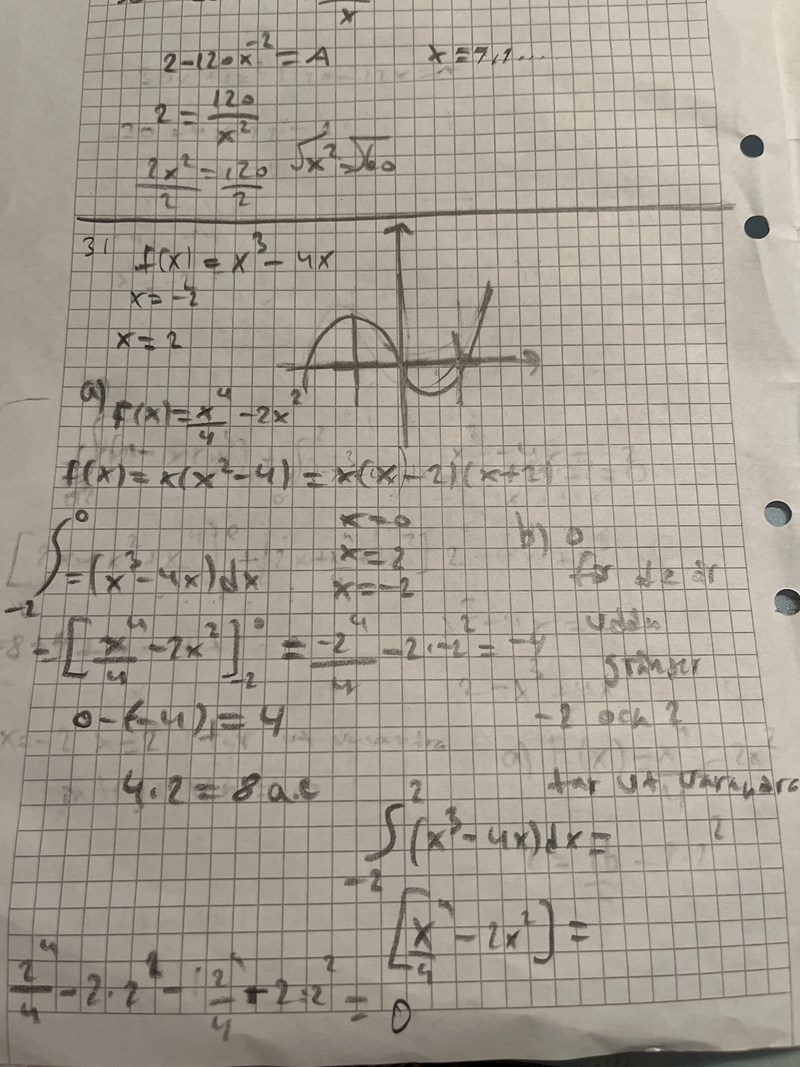 x
2-120x^-2 = A
x = 7,7....
2 = 120/x^2
2x^2/2 = 120/2
√x^2 = √60
31
f(x) = x^3 - 4x
x = -2
x = 2
a)
F(x) = x^4/4 - 2x^2
f(x) = x(x^2-4) = x(x-2)(x+2)
x=0
x=2
x=-2
∫_-2^0 = (x^3-4x)dx
= [x^4/4 - 2x^2]_-2^0 = -2^4/4 - 2·-2^2 = -4
0-(-4) = 4
4·2 = 8 a.e
b) 0
för de är
udda
gränser
-2 och 2
tar ut varandra
∫_-2^2 (x^3-4x)dx =
[x^4/4 - 2x^2] =
2^4/4 - 2·2^2 - 2^4/4 + 2·2^2 = 0